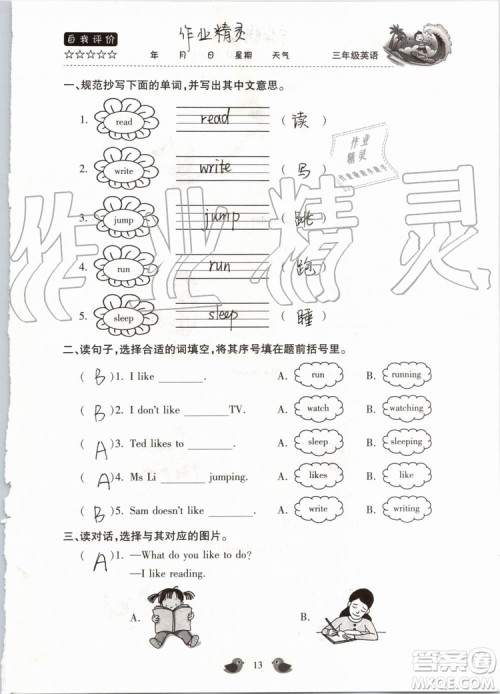 自我评价 作业精灵
☆☆☆☆☆ 年 月 日 星期 天气 三年级英语
一、规范抄写下面的单词,并写出其中文意思。
1. read read ( 读 )
2. write write ( 写 )
3. jump jump ( 跳 )
4. run run ( 跑 )
5. sleep sleep ( 睡 )
作业精灵
作业
精灵
二、读句子,选择合适的词填空,将其序号填在题前括号里。
( B )1. I like ______. A. run B. running
( B )2. I don't like ______TV. A. watch B. watching
( A )3. Ted likes to ______. A. sleep B. sleeping
( A )4. Ms Li ______ jumping. A. likes B. like
( B )5. Sam doesn't like ______. A. write B. writing
三、读对话,选择与其对应的图片。
( A )1. —What do you like to do?
—I like reading.
A. B.
13
答案圈
MXQE.COM